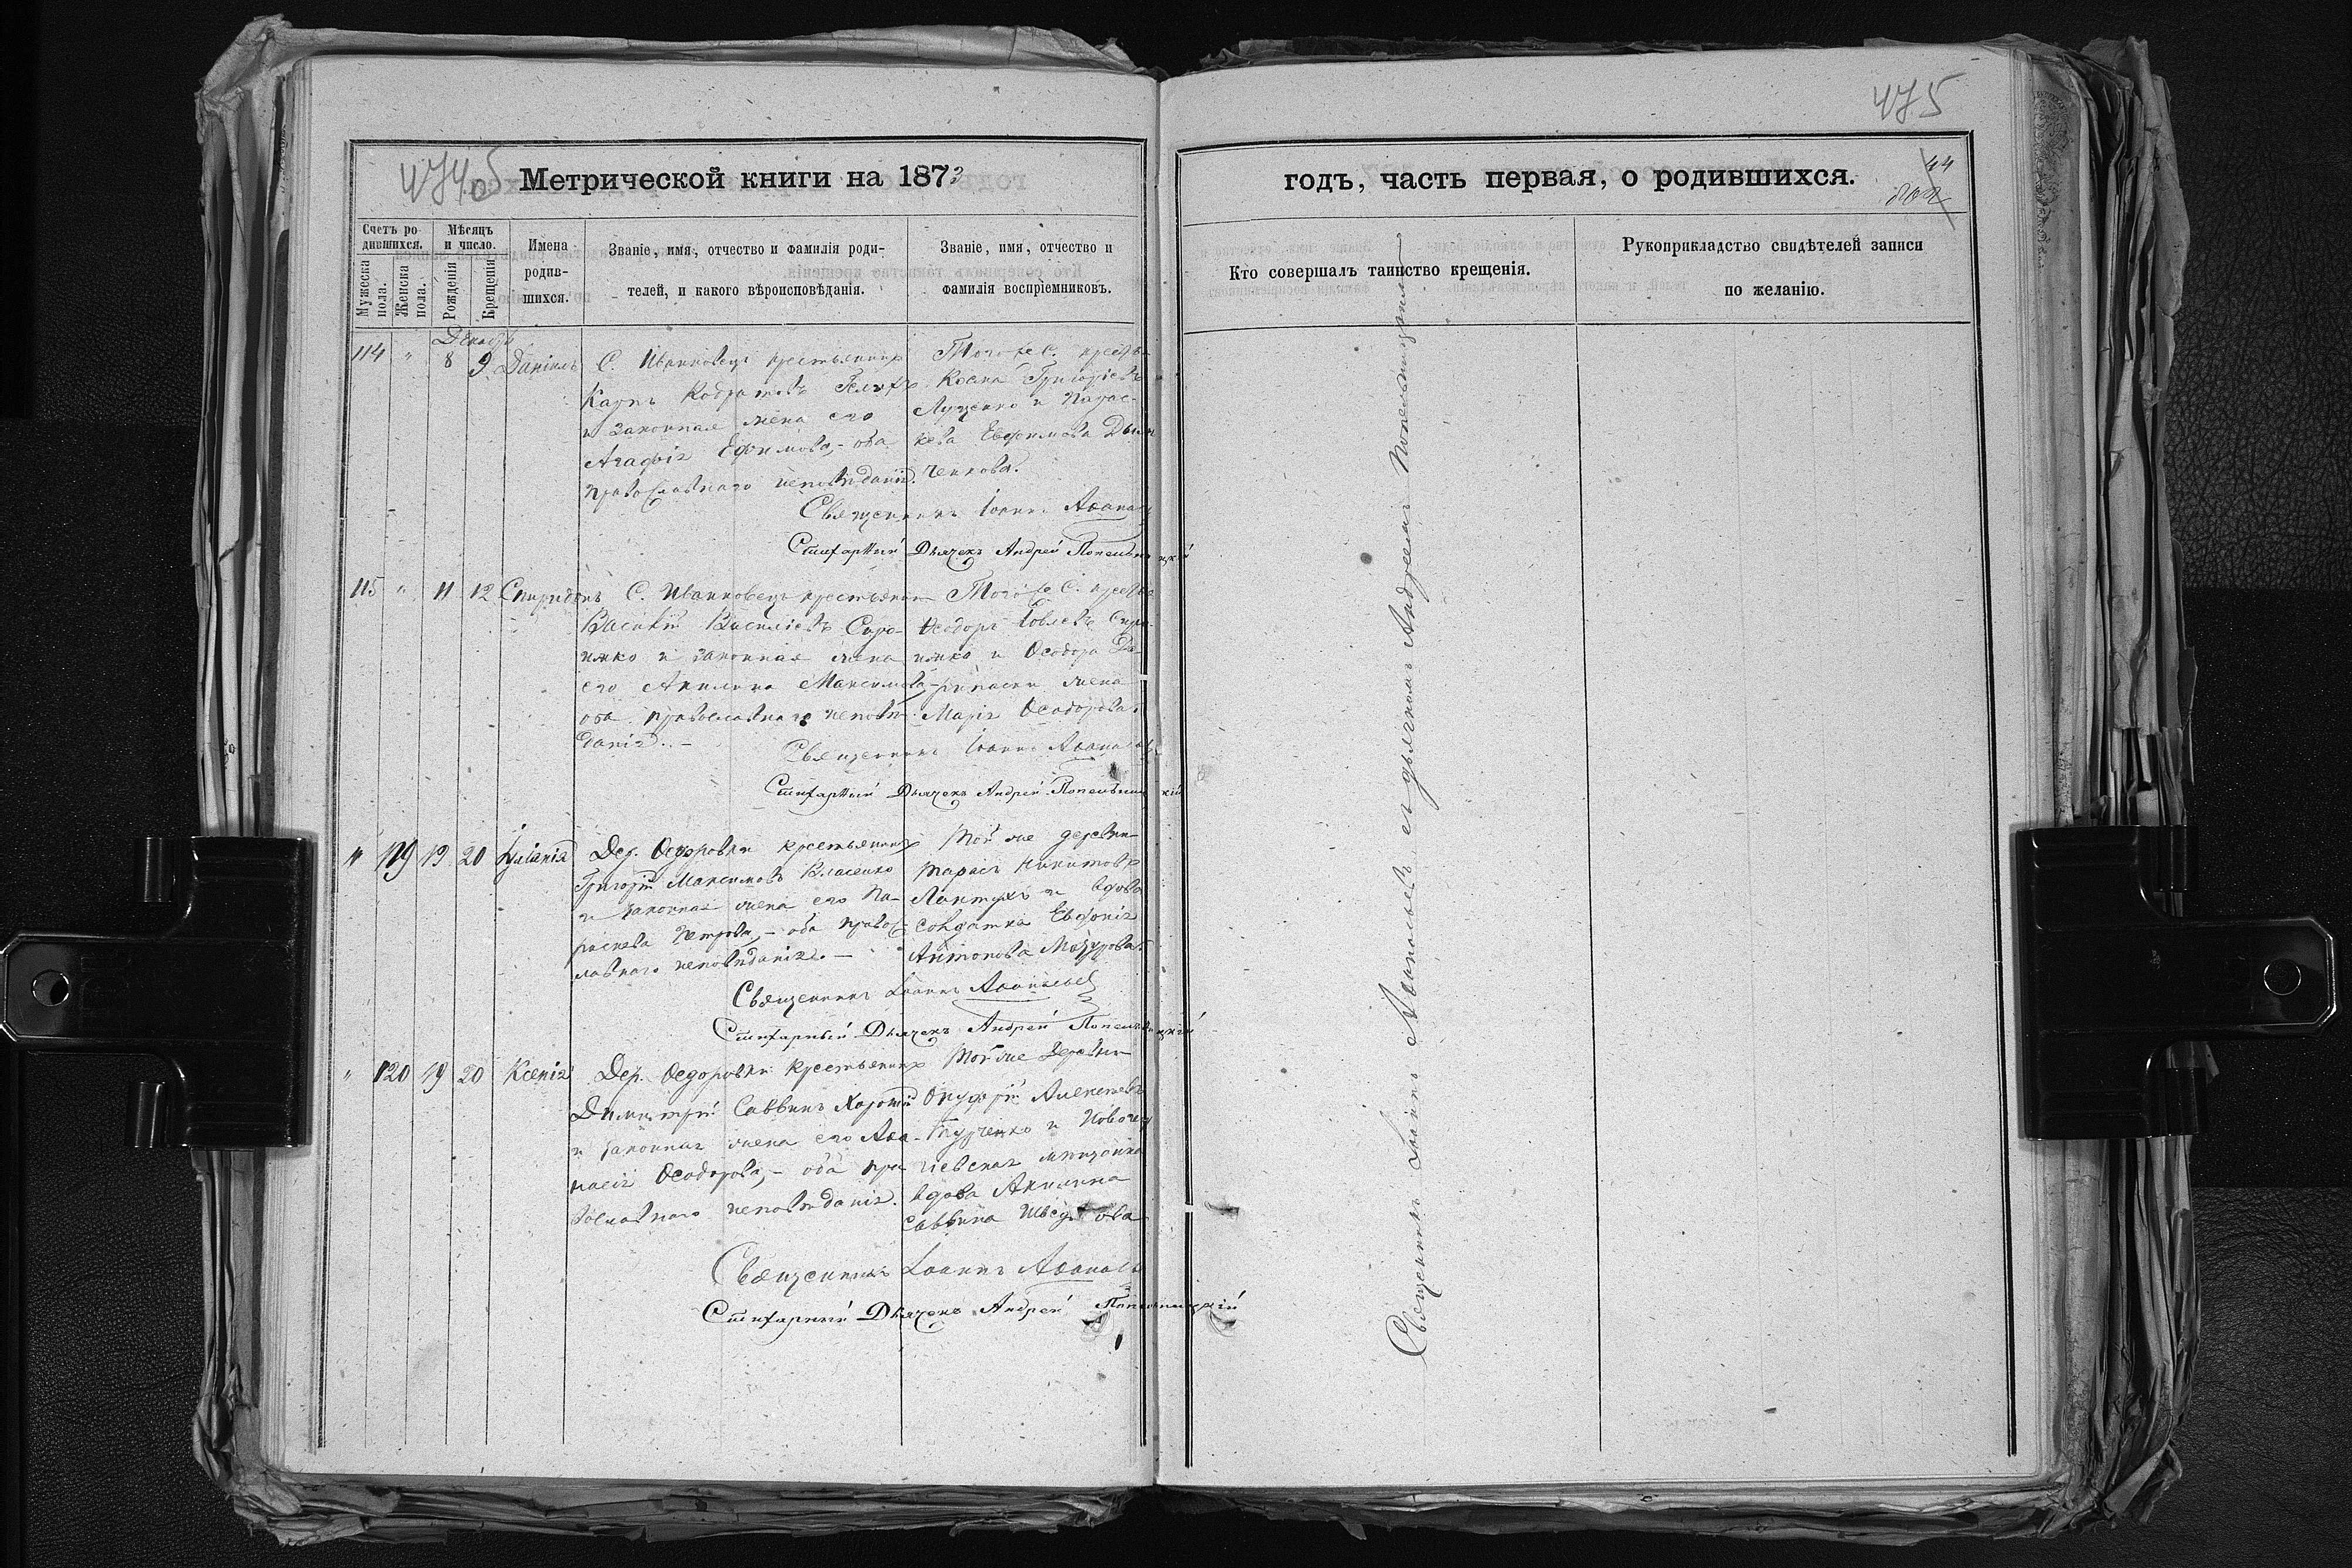 475
474 об
44
Метрической книги на 1873
годъ, часть первая, о родившихся.
Счетъ ро-
дившихся.
Мужеска
пола.
Женска
пола.
Мѣсяцъ
и число.
Рожденія
Крещенія
Имена
родив-
шихся.
Званіе, имя, отчество и фамилія роди-
телей, и какого вѣроисповѣданія.
Званіе, имя, отчество и
фамилія воспріемниковъ.
Кто совершалъ таинство крещенія.
Рукоприкладство свидѣтелей записи
по желанію.
Декабрь
114 " 8 9 Даніилъ
С. Иванковецъ крестьянинъ
Карпъ Кодратовъ
и законная жена его
Агафія Ефимова, - оба
православнаго исповѣданія.
Того же С. крест.
Косма Григоріевъ
Луценко и Парас-
кева Евфимова
ченкова.
Священникъ Іоаннъ Аѳанась
Стихарный Дьячекъ Андрей Попельницкій
115 " 11 12 Спиридонъ
С. Иванковецъ крестьянинъ
Василій Василіевъ Сиро-
и законная жена
его Акилина Максимова, -
оба православнаго исповѣ-
данія. -
Того же С. крест.
Ѳеодоръ Іовлевъ
и Ѳеодора
жена
Марія Ѳеодорова.
Священникъ Іоаннъ Аѳанась
Стихарный Дьячекъ Андрей Попельницкій
" 119 19 20 Іуліанія
Дер. Ѳедоровки крестьянинъ
Григорій Максимовъ Власенко
и законная жена его Па-
раскева Петрова, - оба правос-
лавнаго исповѣданія. -
Той же деревни
Тарасъ Никитовъ
Лантухъ и вдова
солдатка Евфонія
Антонова Мазурова.
Священникъ Іоаннъ Аѳанасьевъ
Стихарный Дьячекъ Андрей Попельницкій
" 120 19 20 Ксенія
Дер. Ѳедоровки крестьянинъ
Димитрій Саввинъ
и законная жена его Аѳа-
насія Ѳеодорова, - оба пра-
вославнаго исповѣданія.
Той же деревни
Онуфрій Алексѣевъ
Турченко и Новоге-
гіевская мѣщанка
вдова Акилина
Саввина Швед ова
Священникъ Іоаннъ Аѳанась
Стихарный Дьячекъ Андрей Попельницкій
Священникъ Іоаннъ Аѳанасьевъ съ дьячкомъ Андреемъ Попельницкимъ